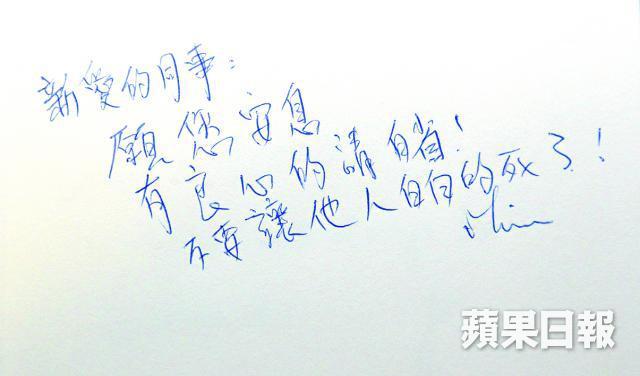 新愛的同事：
願您安息
有良心的請自省！
不要讓他人白白的死了！
蘋果日報